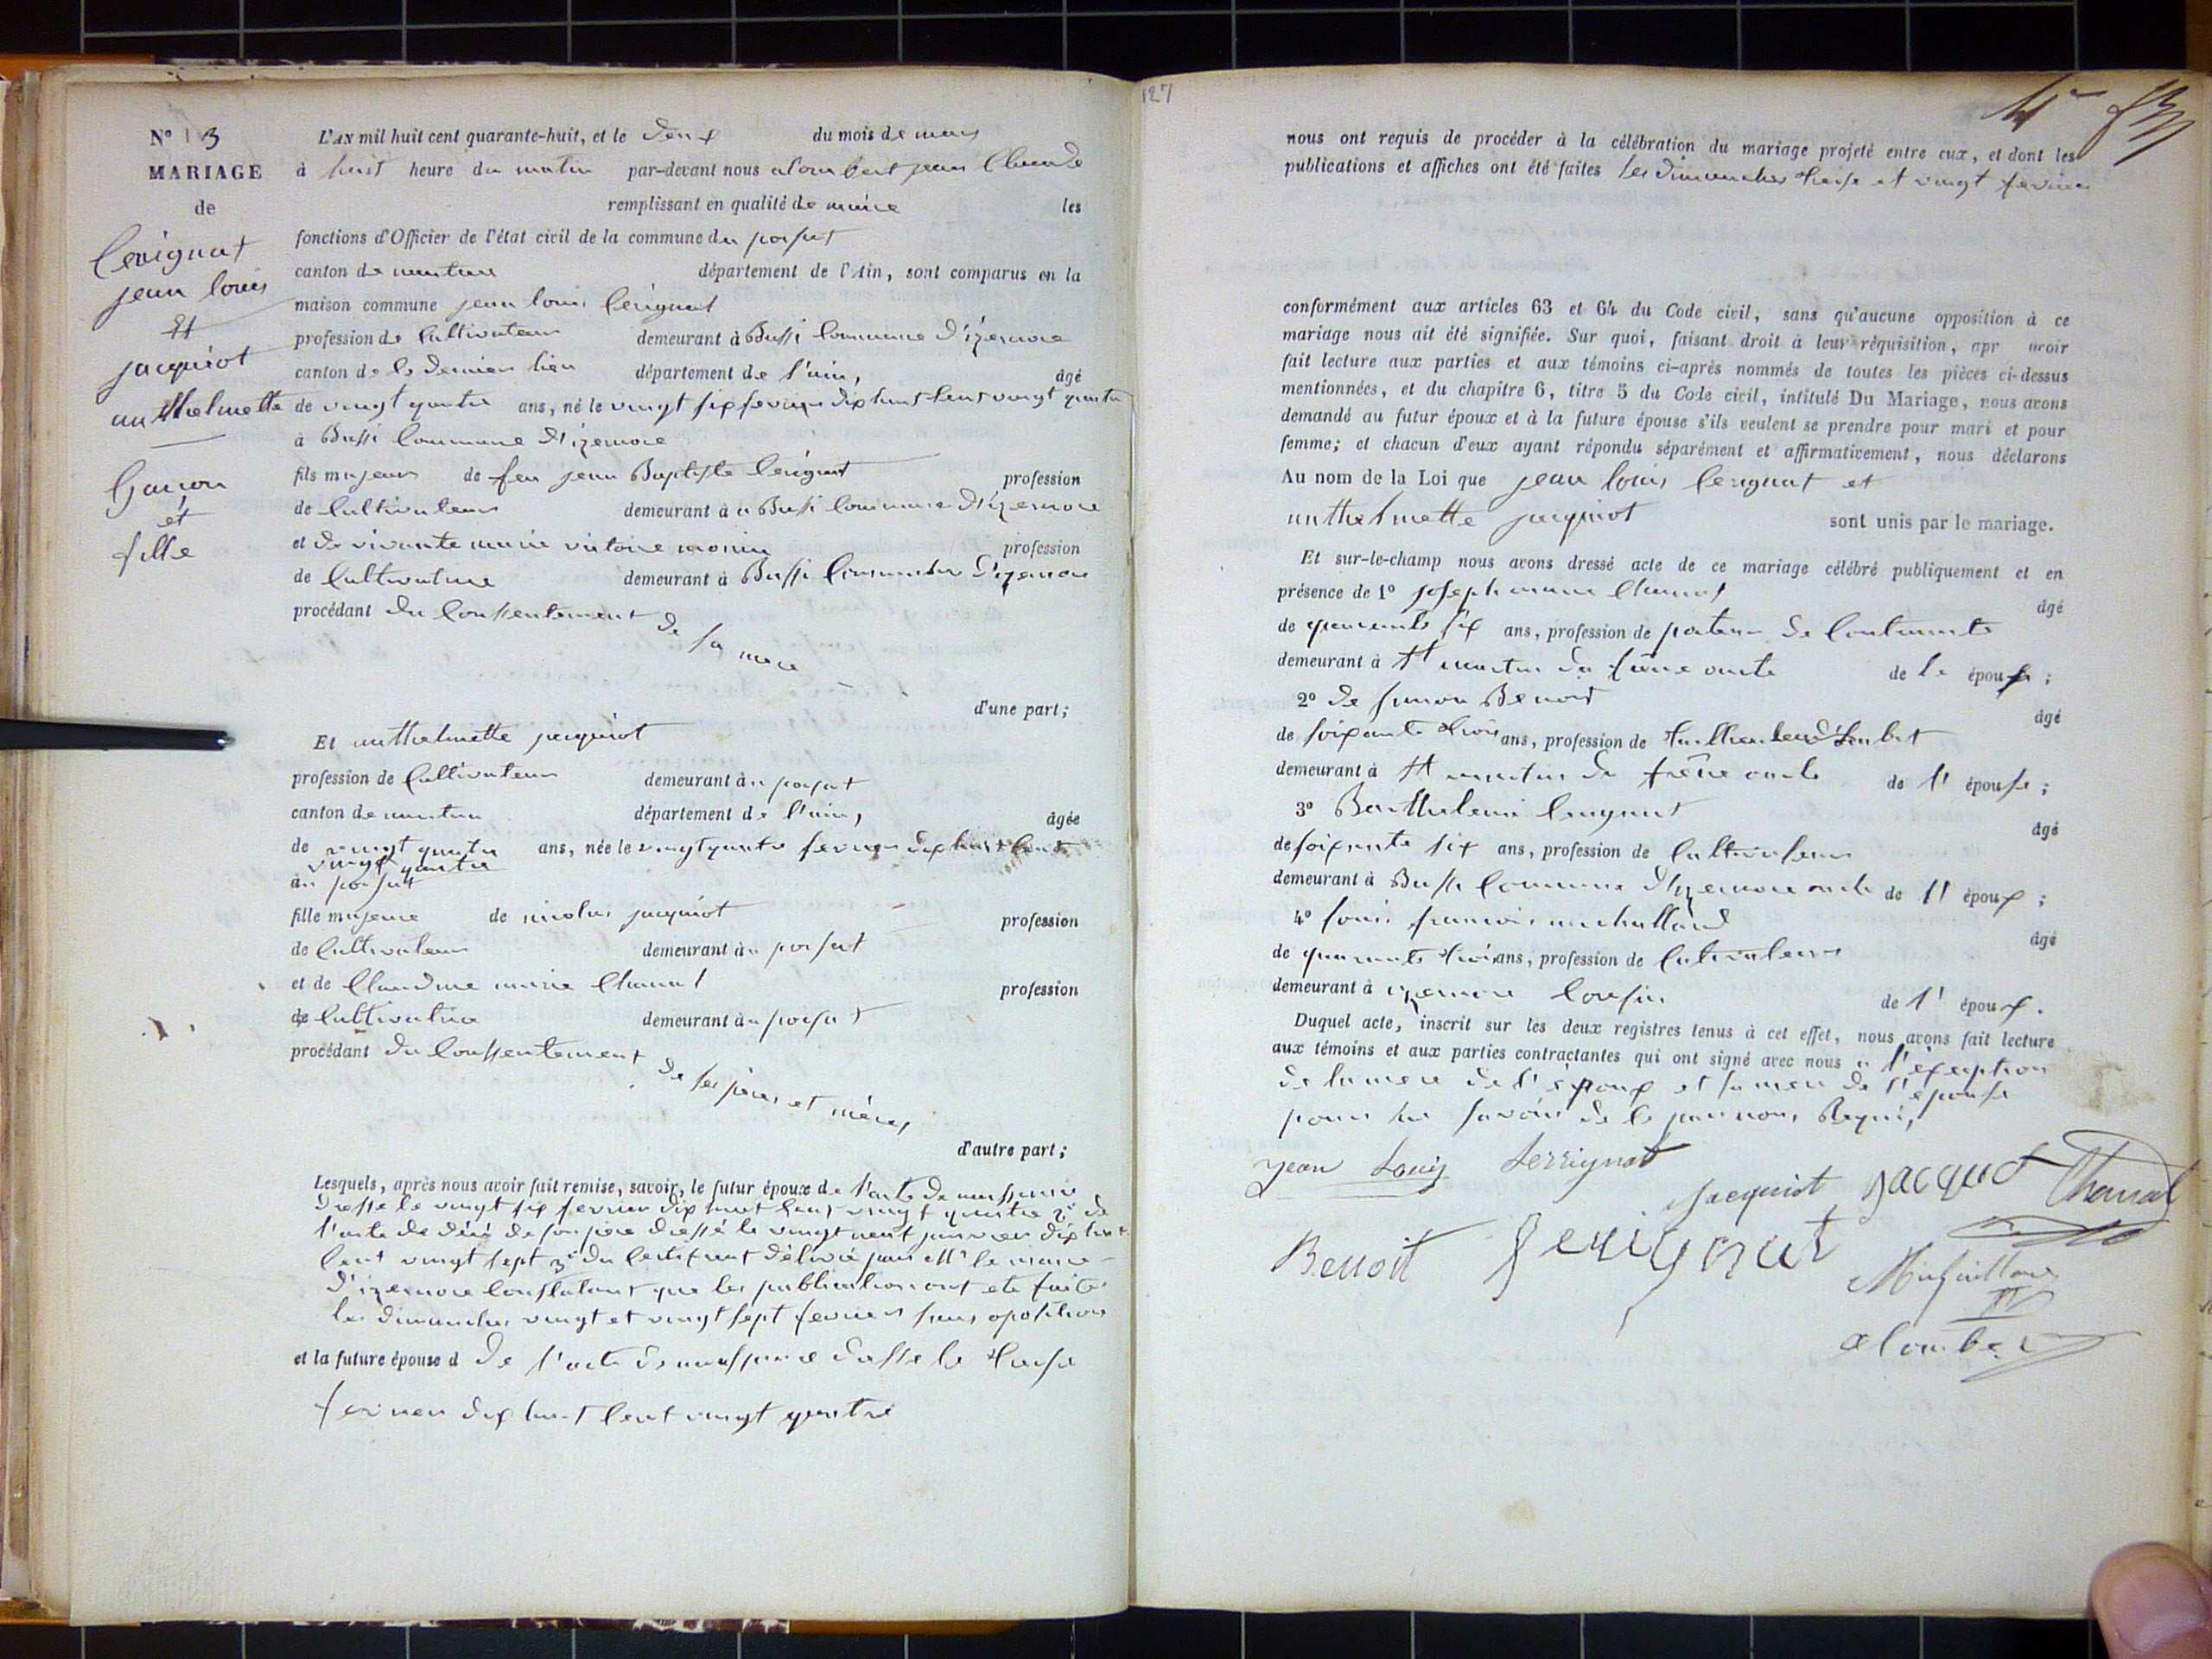 N° 3
MARIAGE
de
Cerignat
jean louis
Et
jacquiot
anthelmette
Garcon
et
fille
L'AN mil huit cent quarante-huit, et le deux du mois de mars
à huit heure du matin par-devant nous alombert jean Claude
remplissant en qualité de maire les
fonctions d'Officier de l'état civil de la commune du
canton de nantua département de l'Ain, sont comparus en la
maison commune jean louis Cerignat
profession de Cultivateur demeurant à Bussi Commune d'izernore
canton de le dernier lieu département de l'ain, âgé
de vingt quatre ans, né le vingt six fevrier dix huit Cent vingt quatre
à Bussi Commune d'izernore
fils majeur de feu jean Baptiste Cerignat profession
de Cultivateur demeurant à a Bussi Commune d'izernore
et de vivante marie victoire monin profession
de Cultivatrice demeurant à Bussi d'izernore
procédant du Conssentement de sa mere
d'une part;
Et anthelmette jacquiot
profession de Cultivateur demeurant àu
canton de nantua département de l'ain, âgée
de vingt quatre ans, née le vingt quatre fevrier dix huit Cent
vingt quatre
au
fille majeure de nicolas jacquiot profession
de Cultivateur demeurant àu
et de Claudine marie Chanal profession
de Cultivatrice demeurant àu
procédant du Conssentement de ses père et mère,
d'autre part;
Lesquels, après nous avoir fait remise, savoir, le futur époux de l'acte de naissance
dresse le vingt six fevrier dix huit Cent vingt quatre 2° de
l'acte de décé de son père dressé le vingt neuf janvier dix huit
Cent vingt sept 3° du Certificat délivré par Mr le maire
d'izernore Constatant que les publication ont ete faite
les dimanches vingt et vingt sept fevrier sans oposition
et la future épouse d de l'acte de naissance dresse le treise
fevrier dix huit Cent vingt quatre
127
nous ont requis de procéder à la célébration du mariage projeté entre eux, et dont les
publications et affiches ont été faites les dimanches treise et vingt fevrier
conformément aux articles 63 et 64 du Code civil, sans qu'aucune opposition à ce
mariage nous ait été signifiée. Sur quoi, faisant droit à leur réquisition, apr avoir
fait lecture aux parties et aux témoins ci-après nommés de toutes les pièces ci-dessus
mentionnées, et du chapitre 6, titre 5 du Code civil, intitulé Du Mariage, nous avons
demandé au futur époux et à la future épouse s'ils veulent se prendre pour mari et pour
femme; et chacun d'eux ayant répondu séparément et affirmativement, nous déclarons
Au nom de la Loi que jean louis Cerignat et
anthelmette jacquiot sont unis par le mariage.
Et sur-le-champ nous avons dressé acte de ce mariage célébré publiquement et en
présence de 1° joseph marie Chanal âgé
de quarante six ans, profession de porteur de Contrainte
demeurant à St martin du frene oncle de l'e épouse;
2° de simon Benoit âgé
de soixante trois ans, profession de
demeurant à St martin du frêne oncle de l' épouse;
3° Barthelemi Cerignat âgé
de soixante six ans, profession de Cultivateur
demeurant à Bussi Commune d'izernore oncle de l' époux;
4° louis francois michallard âgé
de quarante trois ans, profession de Cultivateur
demeurant à izernore Cousin de l' époux.
Duquel acte, inscrit sur les deux registres tenus à cet effet, nous avons fait lecture
aux témoins et aux parties contractantes qui ont signé avec nous a l'exeption
de la mere de l'époux et la mere de l'épouse
pour ne savoir de le par nous Requi,
jean Louis Serrignat
jacquiot jacquiot Chanal
Benoit Serignat
alombert